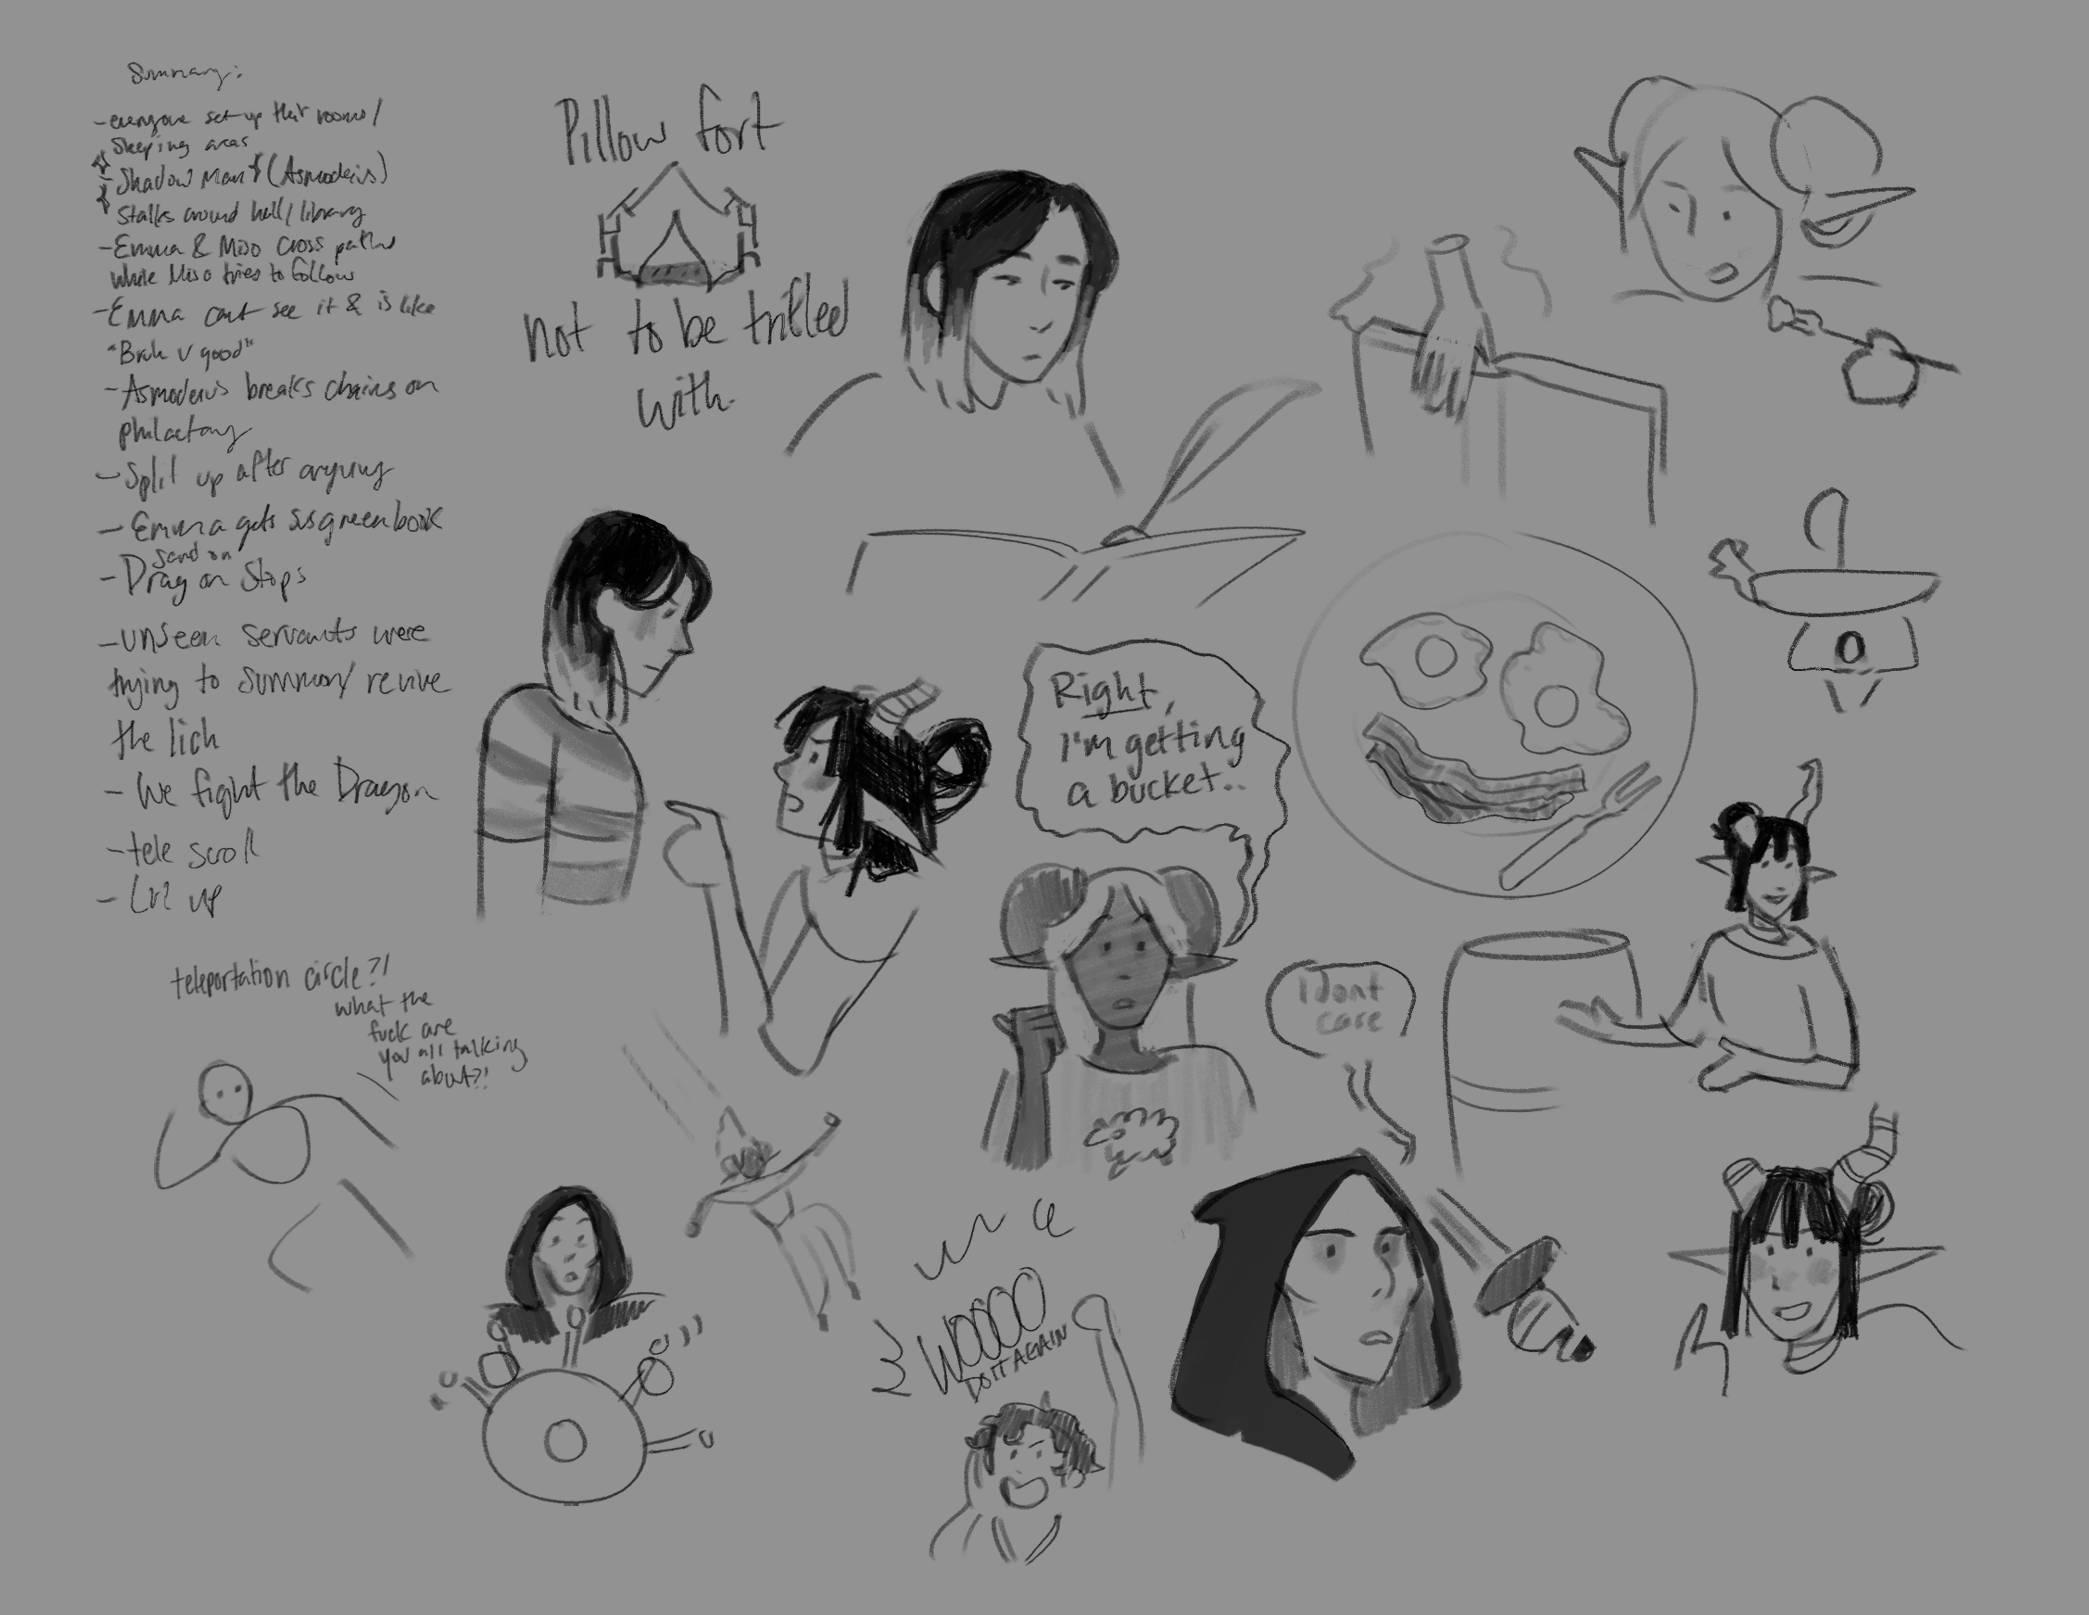 Summary:
- everyone set up their rooms/
sleeping areas
- Shadow Man (Asmodeius)
Stalks around hall/library
- Emma & Miso cross paths
while Miso tries to follow
- Emma cant see it & is like
"Bruh u good"
- Asmodeius breaks chains on
philactory
- Split up after arguing
- Emma gets sus green book
send on
- Dragon Stops
- unseen servants were
trying to summon/revive
the lich
- We fight the Dragon
- tele scroll
- Lvl up
Pillow fort
not to be trifled
with.
Right,
I'm getting
a bucket..
I dont
care
teleportation circle?!
what the
fuck are
you all talking
about?!
WOOOO
DO IT AGAIN